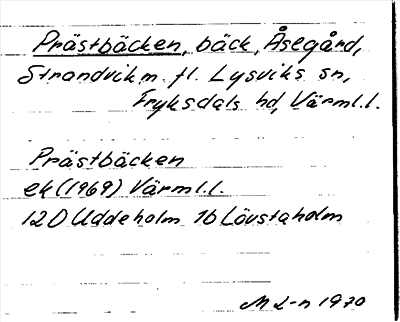 Prästbäcken, bäck, Åsegård,
Strandvik m. fl. Lysviks sn,
Fryksdals hd, Värml.l.
Prästbäcken
ek (1969) Värml.l.
12D Uddeholm 1b Lövstaholm
M L-n 1970